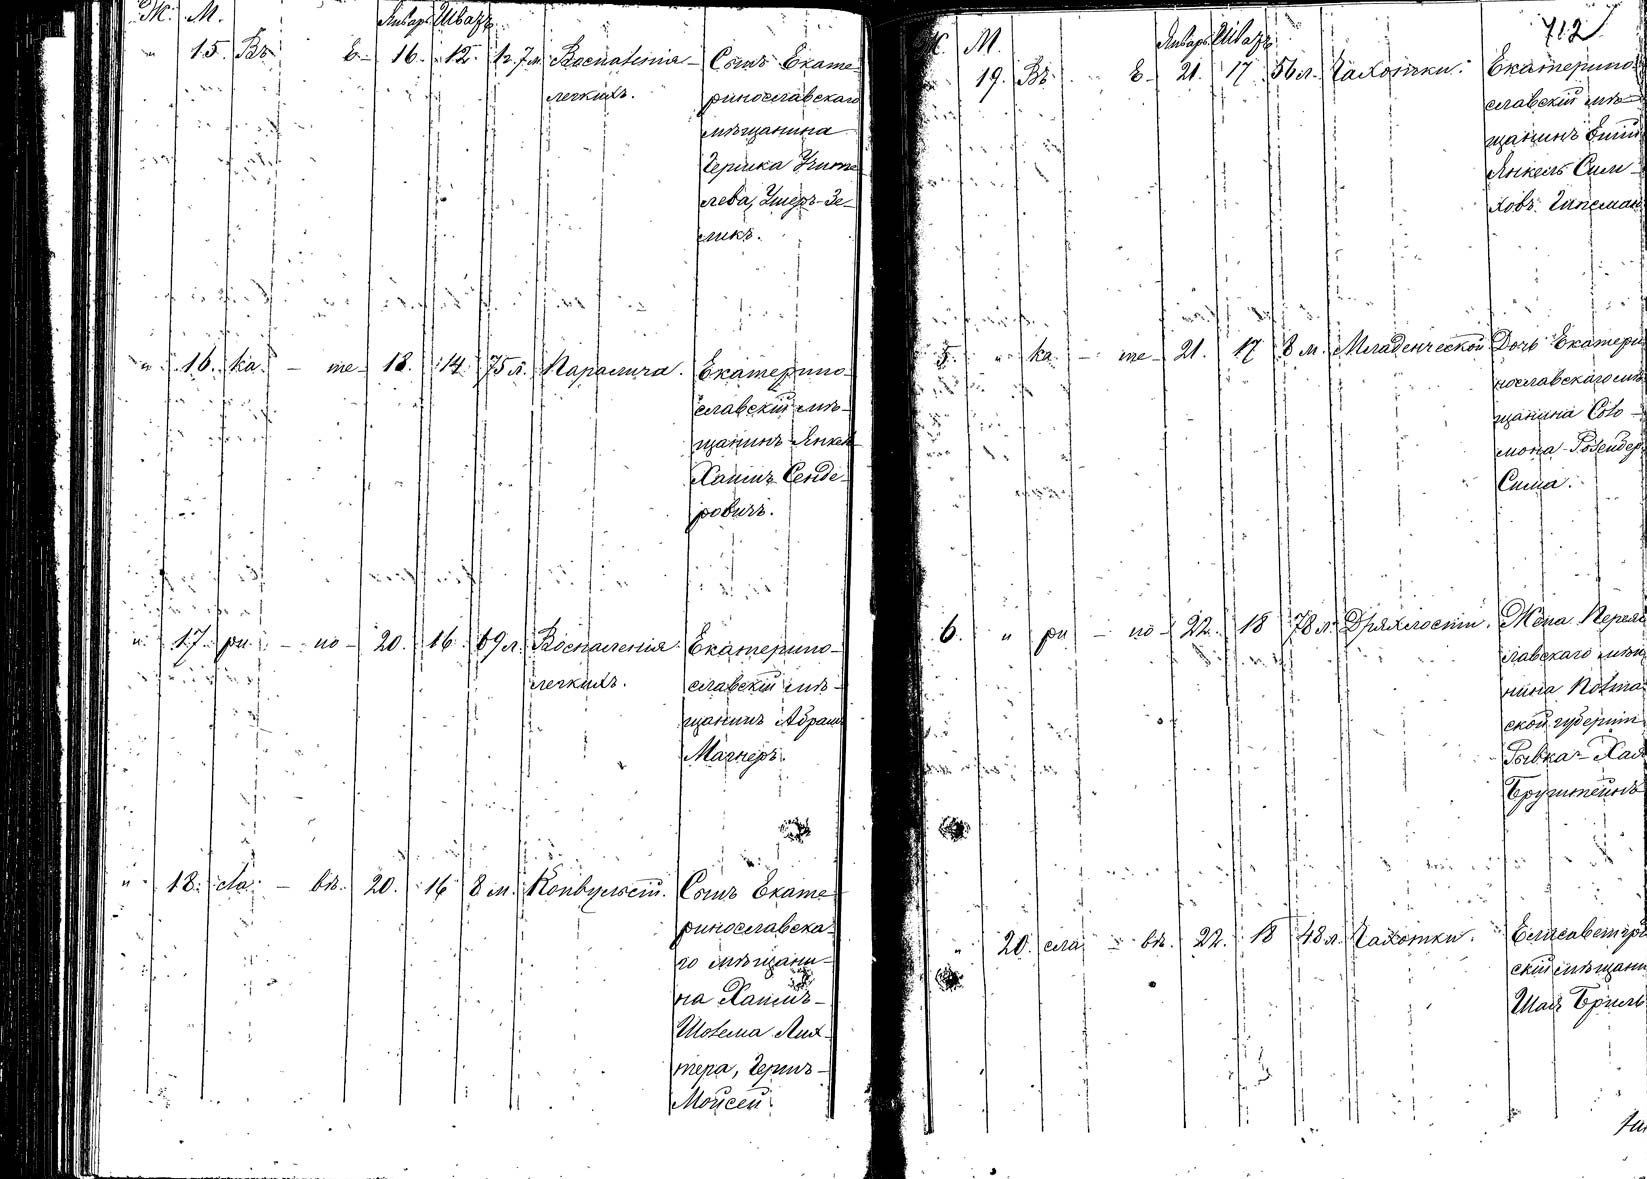 Ж. М. Январь Шватъ
" 15. Въ Е- 16. 12. 1г.7м. Воспаленія Сынъ Екате-
легкихъ. ринославскаго
мѣщанина
Гершка Учите-
лева, Ушеръ-Зе-
ликъ.
" 16. ка - те- 18. 14. 75 л. Паралича. Екатерино-
славскій мѣ-
щанинъ Янкель
Хаимъ Сенде-
ровичъ.
" 17. ри - но - 20. 16. 69 л. Воспаленія Екатерино-
легкихъ. славскій мѣ-
щанинъ Абрамъ
Магнеръ.
" 18. сла - вѣ. 20. 16 8 м. Конвульсій. Сынъ Екате-
ринославска-
го мѣщани-
на Хаимъ-
Шолема Лих-
тера, Гершъ-
Мойсей.
712
Ж. М. Январь Шватъ
19. Въ Е- 21. 17. 56 л. Чахотки. Екатерино-
славскій мѣ-
щанинъ
Янкель Сим-
ховъ Гипсман
5. " ка - те- 21. 17 8 м. Младенческой Дочь Екатери
нославскаго мѣ
щанина Соло-
мона
Сима.
6. " ри - но - 22. 18 78 л. Дряхлости. Жена Переяс
лавскаго мѣщ
нина Полтав
ской губерніи
Рывка-Хая
Бруштейнъ
" 20. сла - вѣ. 22. 18 48 л. Чахотки. Елисаветгра
скій мѣщани
Шая Бриль